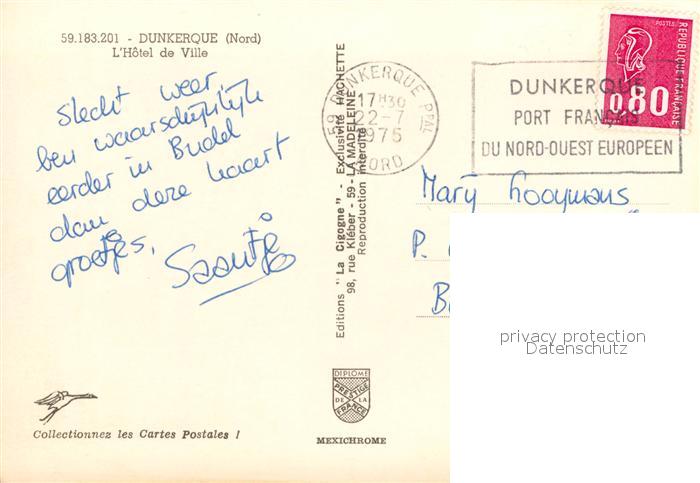 59.183.201 - DUNKERQUE (Nord)
L'Hôtel de Ville
slecht weer
ben waarschijnlijk
eerder in Budel
dan deze kaart
groetjes,
Editions "La Cigogne" - Exclusivité HACHETTE
98, rue Kléber - 59 - LA MADELEINE
Reproduction interdite
59 DUNKERQUE PPAL
17H30
22-7
1975
NORD
DUNKERQUE
PORT FRANÇAIS
DU NORD-OUEST EUROPEEN
POSTES
REPUBLIQUE FRANÇAISE
0,80
Mary Looymans
P.
B
privacy protection
Datenschutz
DIPLOME
PRESTIGE
DE LA
FRANCE
MEXICHROME
Collectionnez les Cartes Postales !